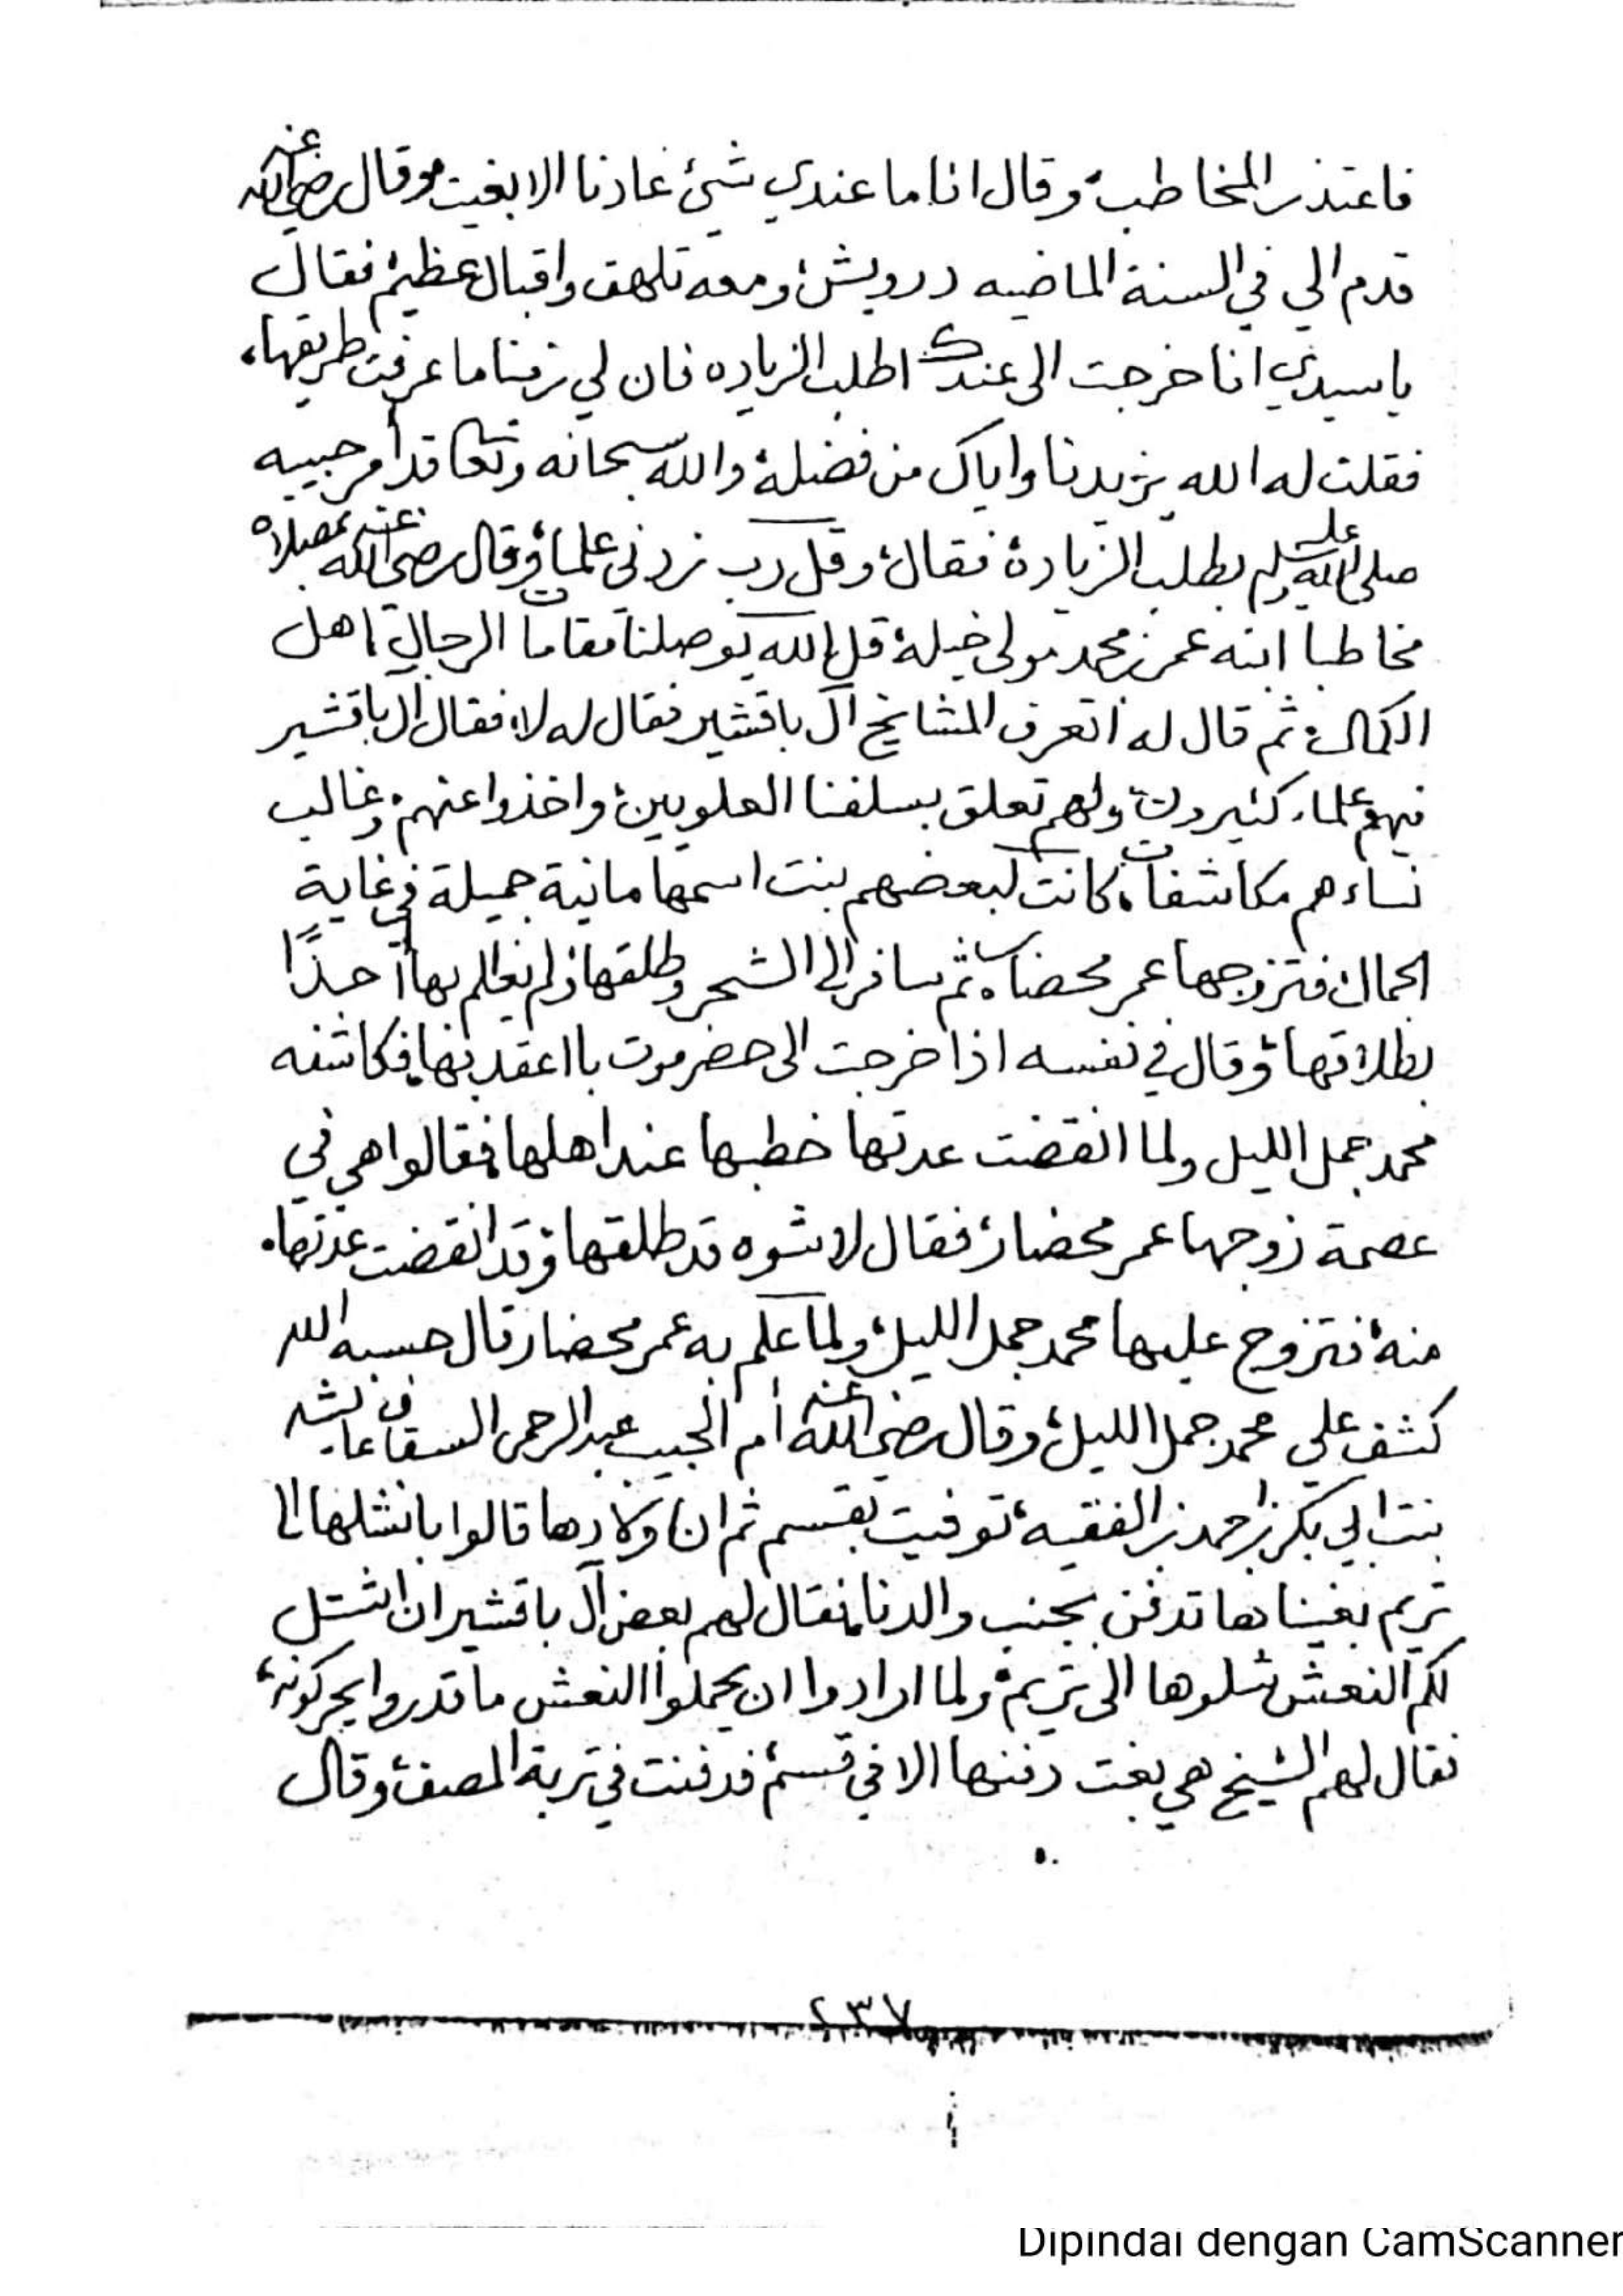 فاعتذر المخاطب، وقال انا ما عندي شئ عادنا الا بغيت، وقال رضي الله عنه
قدم الي في السنة الماضيه درويش، ومعه تلهف واقبال عظيم، فقال
يا سيدي انا خرجت الى عندك اطلب الزياده فان لي زمنا ما عرفت طريقها،
فقلت له الله يزيدنا واياك من فضله، والله سبحانه وتعا قد أمر حبيبه
صلى الله عليه وسلم بطلب الزيادة، فقال، وقل رب زدني علما، وقال رضي الله عنه
مخاطبا ابنه عمر بن محمد مولى خيلة، قل الله يوصلنا مقامات الرجال اهل
الكمال، ثم قال له اتعرف المشايخ آل باقشير فقال له لا، فقال آل باقشير
فيهم علماء كثيرون، ولهم تعلق بسلفنا العلويين، واخذوا عنهم، وغالب
نساءهم مكاشفات، كانت لبعضهم بنت اسمها مانية جميلة في غاية
الجمال، فتزوجها عمر محضار، ثم سافر الى الشحر وطلقها ولم يعلم بها أحدًا
بطلاقها، وقال في نفسه اذا خرجت الى حضرموت با اعقد بها، فكاشفه
محمد جمل الليل ولما انقضت عدتها خطبها عند اهلها، فقالوا هي في
عصمة زوجها عمر محضار، فقال لا شوه قد طلقها، وقد انقضت عدتها.
منه، فتزوج عليها محمد جمل الليل، ولما علم به عمر محضار قال حسبه الله
كشف علي محمد جمل الليل، وقال رضي الله عنه أم الحبيب عبد الرحمن السقاف عايشه
بنت ابي بكر بن احمد بن الفقيه، توفيت بقسم ثم ان اولادها قالوا با نشلها الى
تريم بغيناها تدفن بجنب والدنا، فقال لهم بعض آل باقشير ان انشتل
لكم النعش شلوها الى تريم، ولما ارادوا ان يحملوا النعش ما قدروا يحركونه،
فقال لهم الشيخ هي بغت دفنها الا في قسم، فدفنت في تربة المصف، وقال
٢٣٧
Dipindai dengan CamScanner